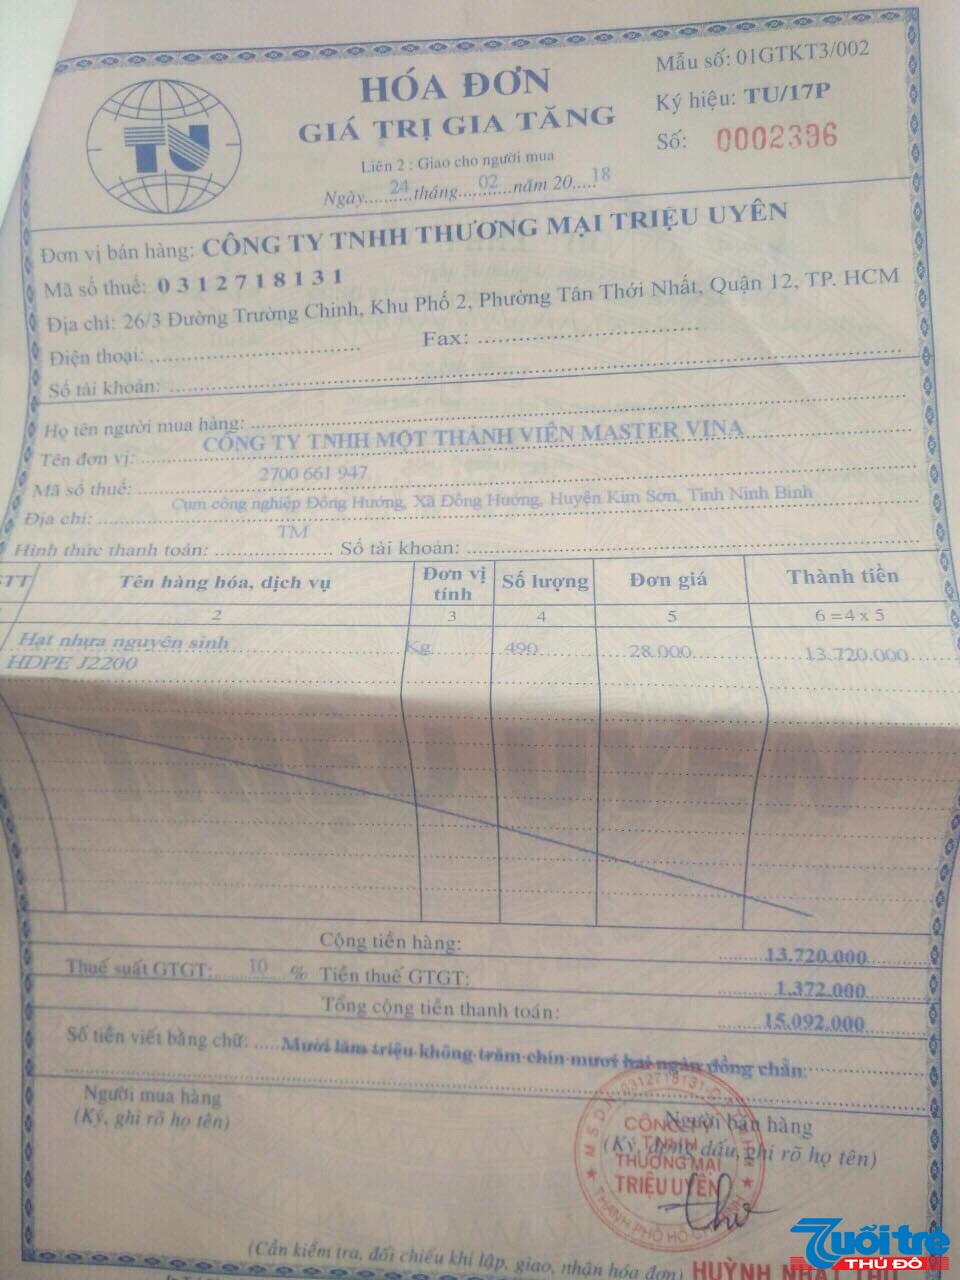 TU
HÓA ĐƠN
GIÁ TRỊ GIA TĂNG
Liên 2 : Giao cho người mua
Ngày..........24.tháng..........02...năm 20.....18
Mẫu số: 01GTKT3/002
Ký hiệu: TU/17P
Số: 0002396
Đơn vị bán hàng: CÔNG TY TNHH THƯƠNG MẠI TRIỆU UYÊN
Mã số thuế: 0312718131
Địa chỉ: 26/3 Đường Trường Chinh, Khu Phố 2, Phường Tân Thới Nhất, Quận 12, TP. HCM
Điện thoại: Fax:
Số tài khoản:
Họ tên người mua hàng:
Tên đơn vị: CÔNG TY TNHH MỘT THÀNH VIÊN MASTER VINA
Mã số thuế: 2700 661 947
Địa chỉ: Cụm công nghiệp Đồng Hướng, Xã Đồng Hướng, Huyện Kim Sơn, Tỉnh Ninh Bình
Hình thức thanh toán: TM Số tài khoản:
STT Tên hàng hóa, dịch vụ Đơn vị tính Số lượng Đơn giá Thành tiền
2 3 4 5 6 = 4 x 5
Hạt nhựa nguyên sinh Kg 490 28.000 13.720.000
HDPE J2200
TRIỆU UYÊN
Cộng tiền hàng: 13.720.000
Thuế suất GTGT: 10 % Tiền thuế GTGT: 1.372.000
Tổng cộng tiền thanh toán: 15.092.000
Số tiền viết bằng chữ: Mười lăm triệu không trăm chín mươi hai ngàn đồng chẵn
Người mua hàng
(Ký, ghi rõ họ tên)
Người bán hàng
(Ký, đóng dấu, ghi rõ họ tên)
CÔNG TY
TNHH
THƯƠNG MẠI
TRIỆU UYÊN
THÀNH PHỐ HỒ CHÍ MINH
(Cần kiểm tra, đối chiếu khi lập, giao, nhận hóa đơn)
HUỲNH
Tuổi trẻ
THỦ ĐÔ